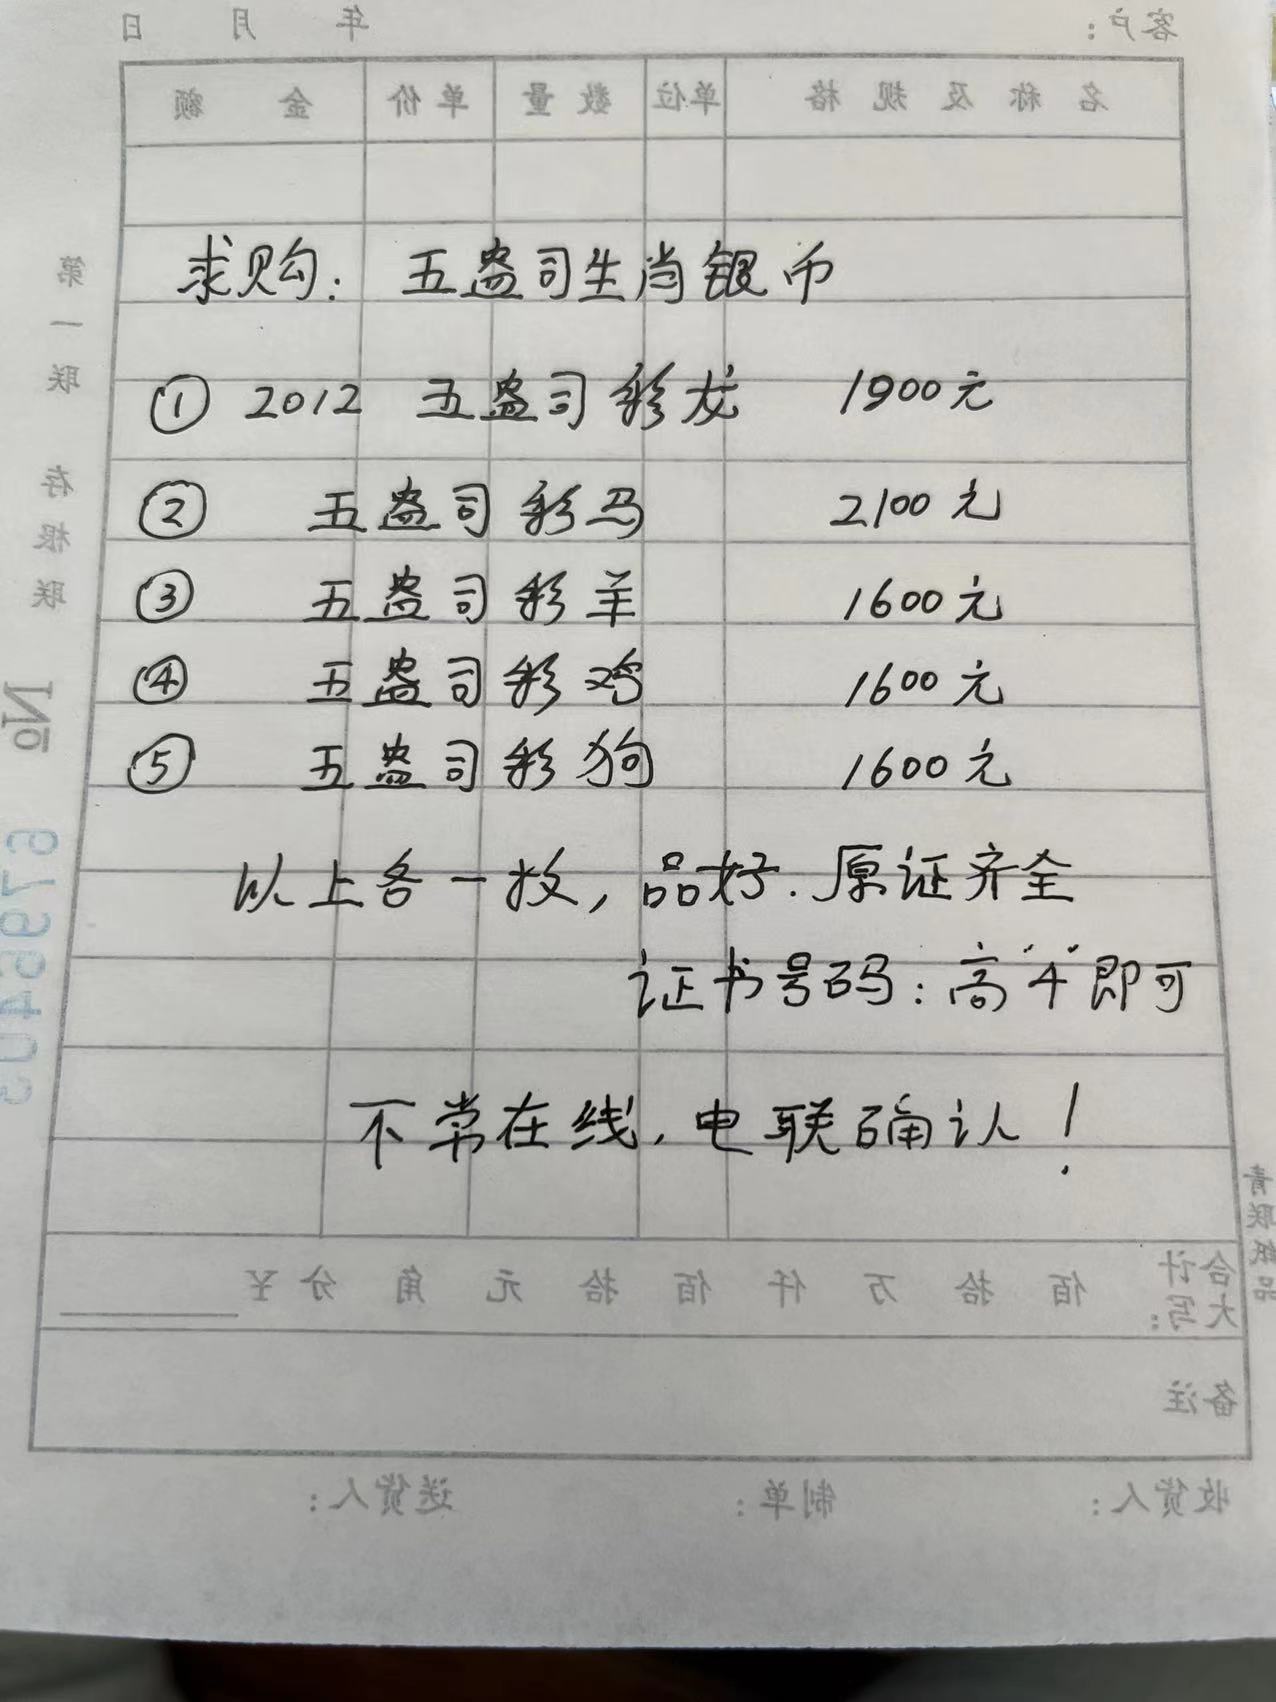 客户：　年　月　日
名称及规格　单位　数量　单价　金额
求购：五盎司生肖银币
① 2012 五盎司彩龙 1900元
② 五盎司彩马 2100元
③ 五盎司彩羊 1600元
④ 五盎司彩鸡 1600元
⑤ 五盎司彩狗 1600元
以上各一枚，品好．原证齐全
证书号码：高“4”即可
不常在线，电联确认！
合计大写：　佰　拾　万　仟　佰　拾　元　角　分　¥
备注
收货人：　制单：　送货人：
第一联　存根联　№
青联纸品